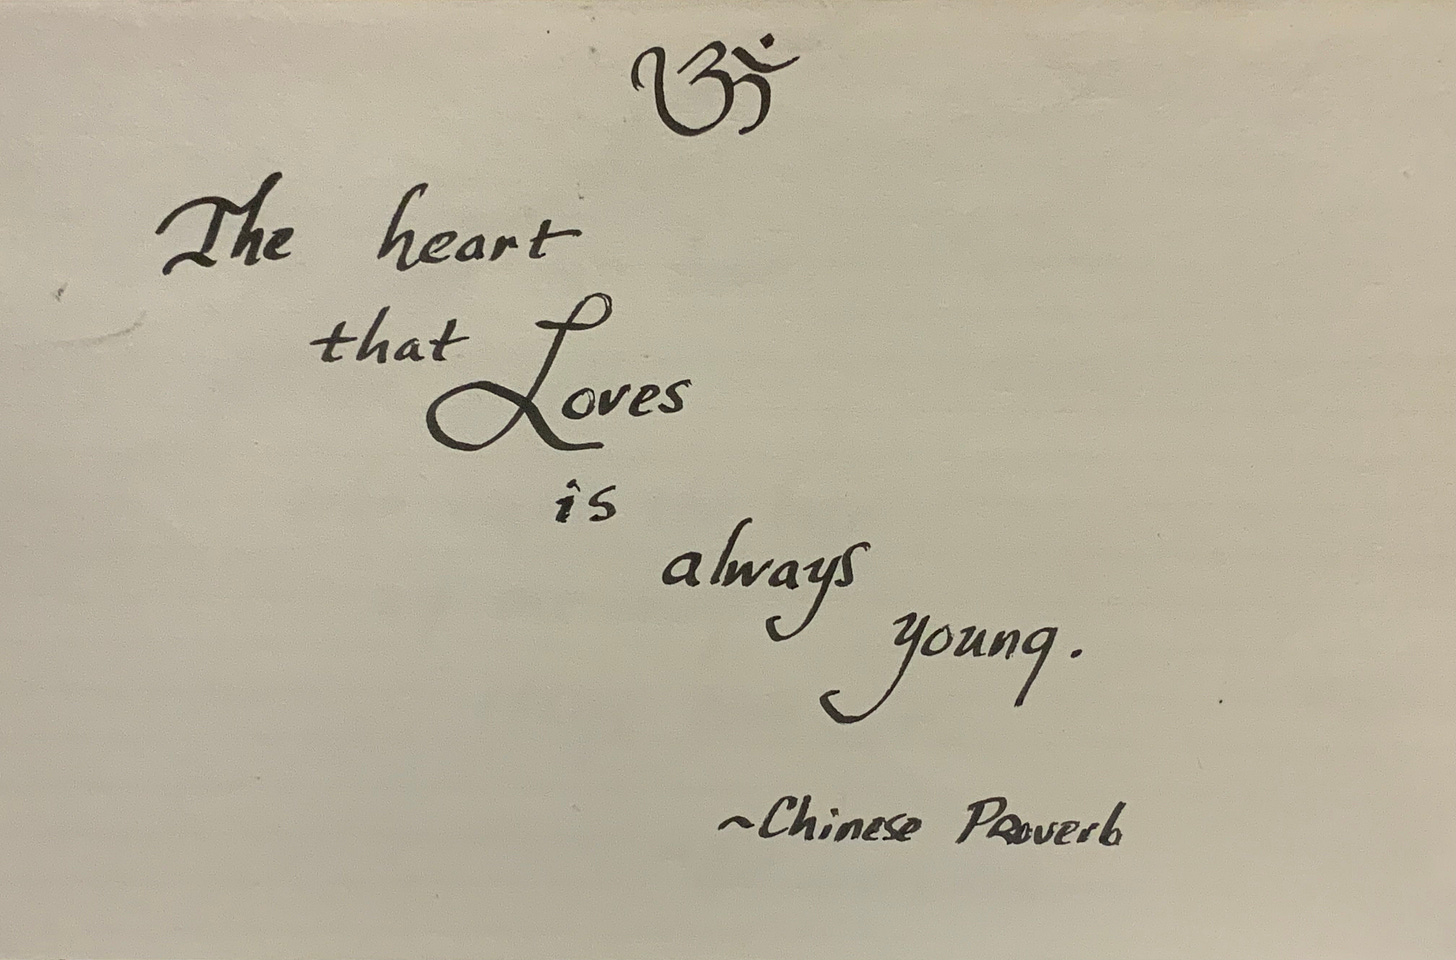 ॐ
The heart
that Loves
is
always
young.
~Chinese Proverb